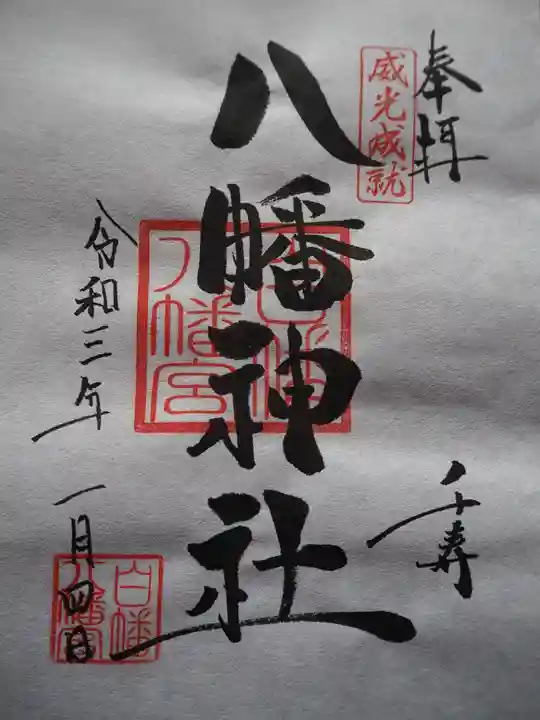 奉拝
威光成就
八幡神社
八幡宮
千寿
令和三年
一月四日
白幡
八幡宮